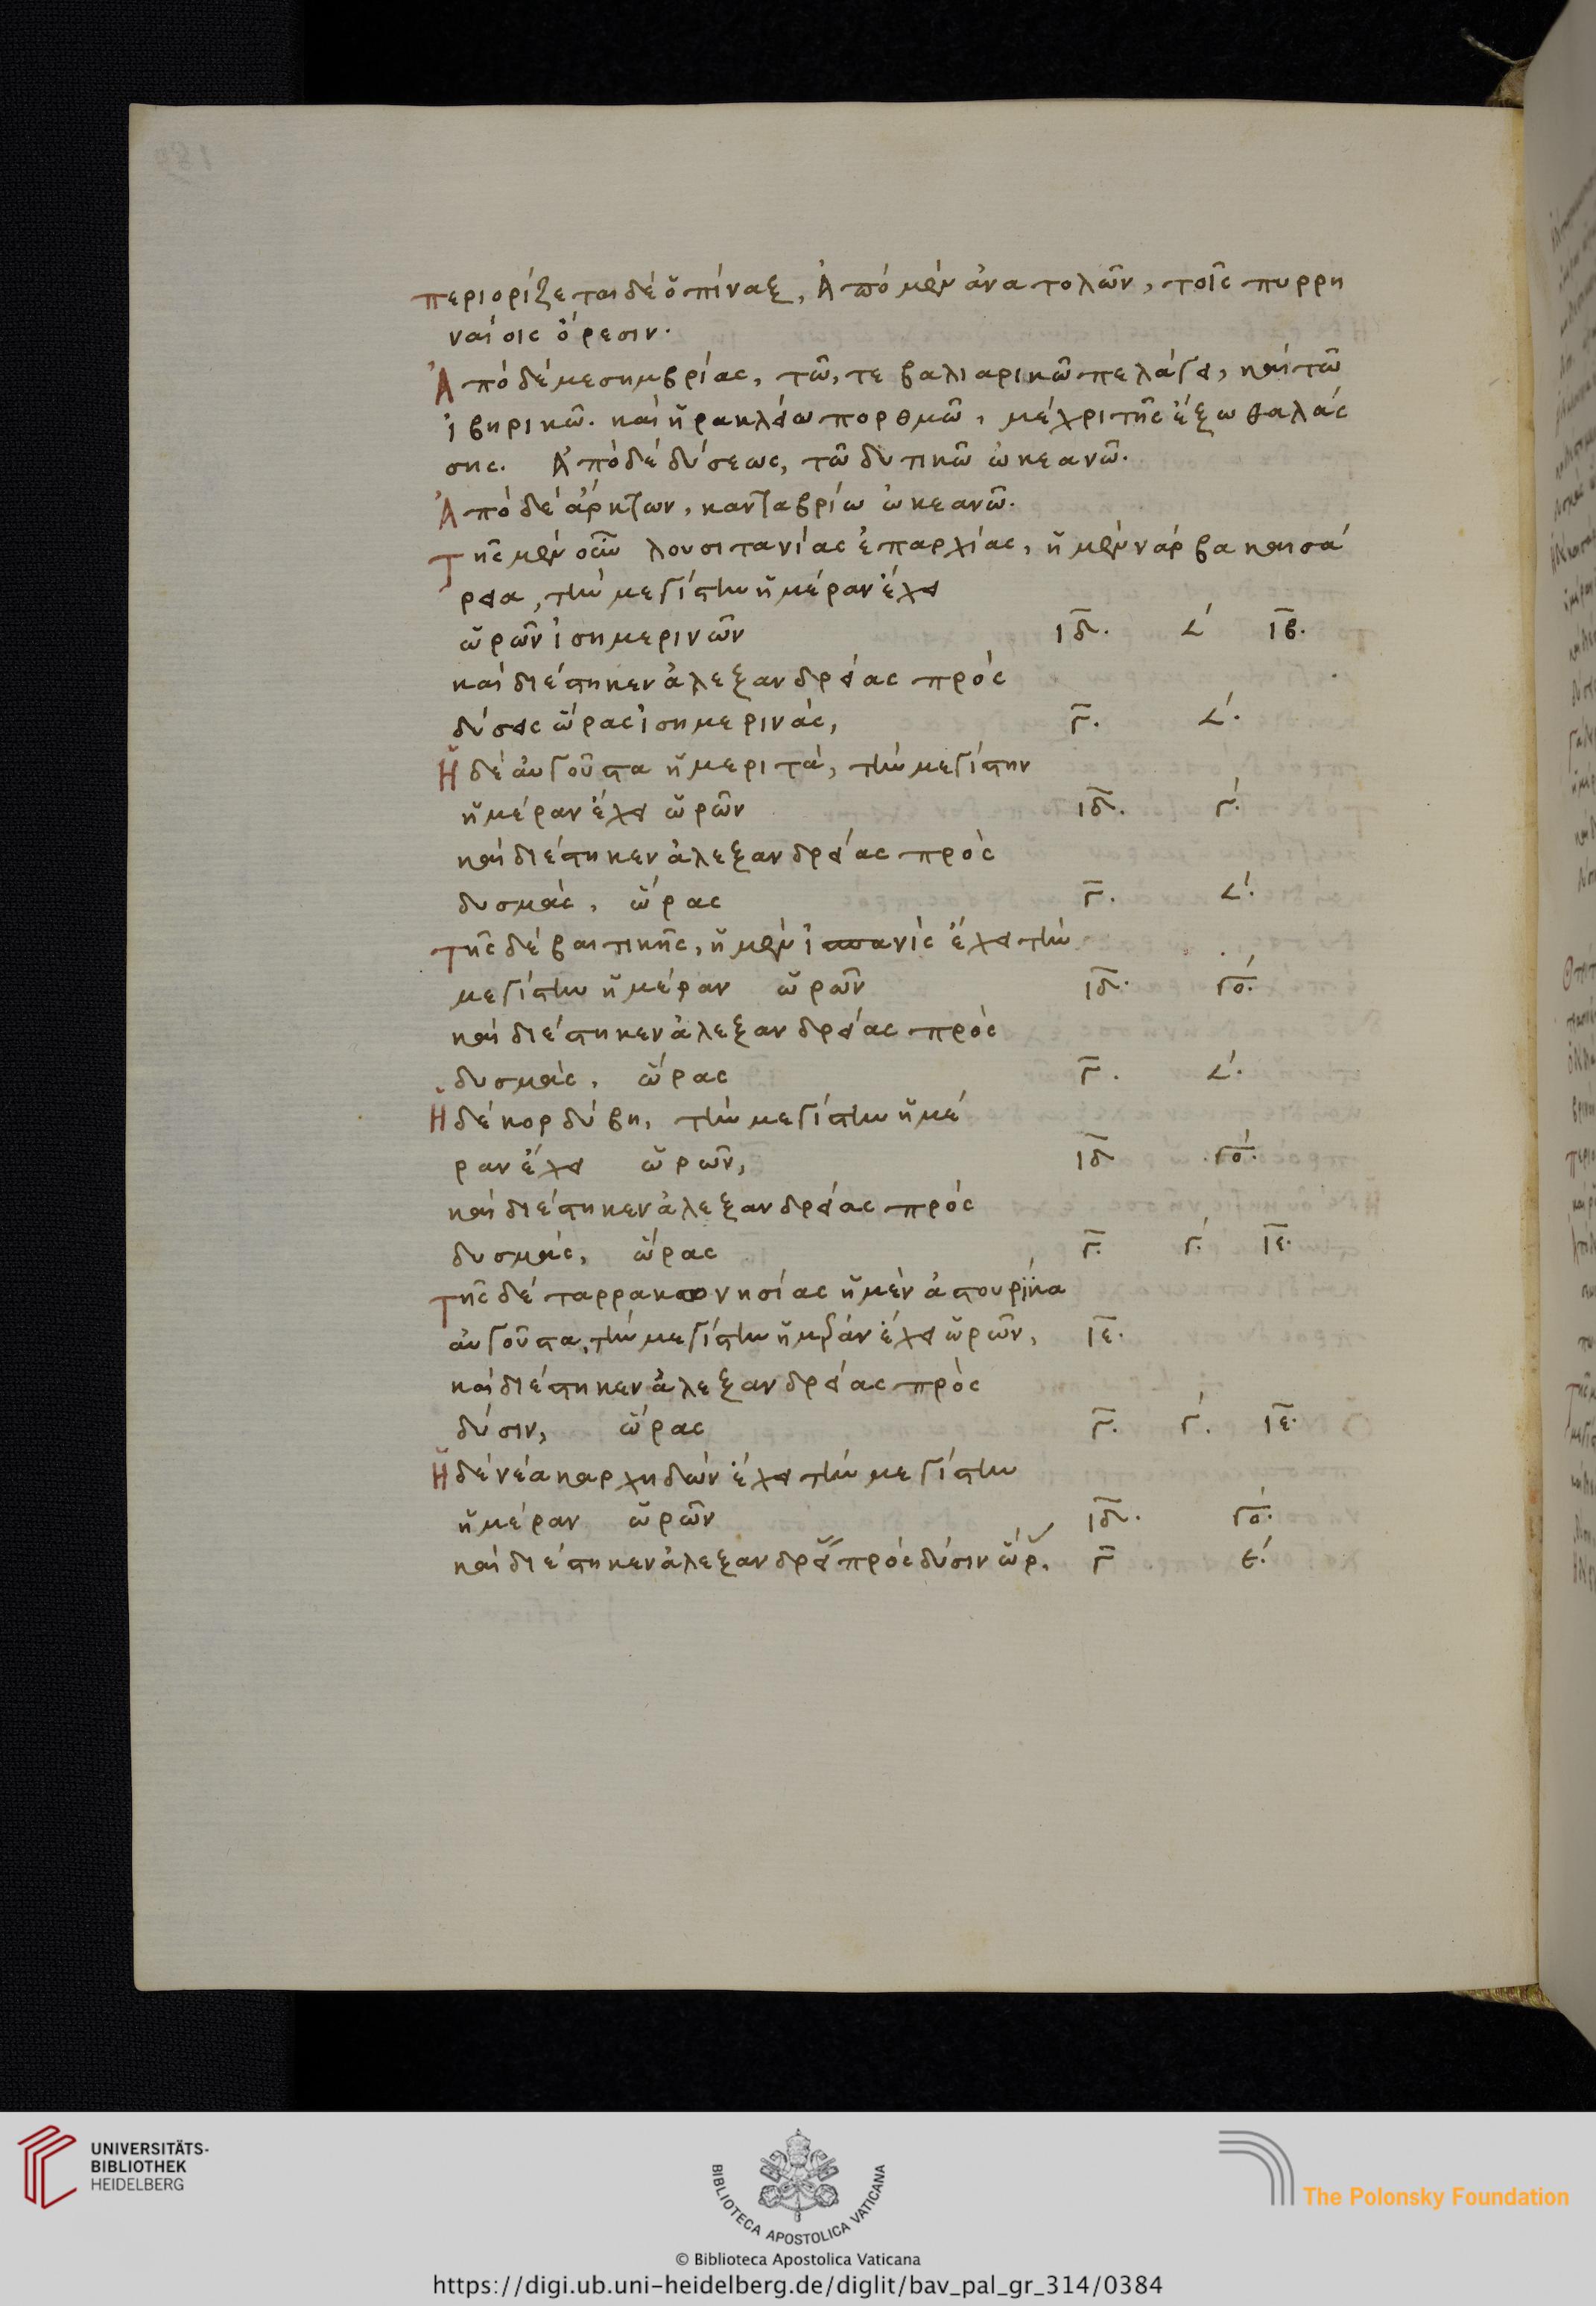 περιορίζεται δέ ὁ πίναξ, Ἀπό μὲν ἀνατολῶν, τοῖς πυρρη
ναίοις ὄρεσιν.
Ἀπό δέ μεσημβρίας, τῶ, τε βαλιαρικῶ πελάγει, καί τῶ
ἰβηρικῶ. καί ἡρακλείω πορθμῶ, μέχρι τῆς ἔξω θαλάς
σης. Ἀπό δέ δύσεως, τῶ δυτικῶ ὠκεανῶ.
Ἀπό δέ ἄρκτων, κανταβρίω ὠκεανῶ.
Τῆς μὲν οὖν λουσιτανίας ἐπαρχίας, ἡ μὲν νάρβα καισά
ρεια, τὴν μεγίστην ἡμέραν ἔχει
ὡρῶν ἰσημερινῶν ιδ. 𐅵´ ιβ.
καί διέστηκεν ἀλεξανδρείας πρός
δύσεις ὥρας ἰσημερινάς, γ. 𐅵´.
Ἡ δέ αὐγοῦστα ἡμεριτά, τὴν μεγίστην
ἡμέραν ἔχει ὡρῶν ιδ. γ´.
καί διέστηκεν ἀλεξανδρείας πρός
δυσμάς, ὥρας γ. 𐅵´.
Τῆς δέ βαιτικῆς, ἡ μὲν ἱσπανίς ἔχει τὴν
μεγίστην ἡμέραν ὡρῶν ιδ. γο´.
καί διέστηκεν ἀλεξανδρείας πρός
δυσμάς, ὥρας γ. 𐅵´.
Ἡ δέ κορδύβη, τὴν μεγίστην ἡμέ
ραν ἔχει ὡρῶν, ιδ γο´.
καί διέστηκεν ἀλεξανδρείας πρός
δυσμάς, ὥρας γ. γ´. ιε.
Τῆς δέ ταρρακωνησίας ἡ μέν ἀστουρίκα
αὐγοῦστα, τὴν μεγίστην ἡμέραν ἔχει ὡρῶν, ιε.
καί διέστηκεν ἀλεξανδρείας πρός
δύσιν, ὥρας γ. γ´. ιε.
Ἡ δέ νέα καρχηδών ἔχει τὴν μεγίστην
ἡμέραν ὡρῶν ιδ. γο´.
καί διέστηκεν ἀλεξανδρεί πρός δύσιν ὥρ. γ ϵ´.
UNIVERSITÄTS-
BIBLIOTHEK
HEIDELBERG
BIBLIOTECA APOSTOLICA VATICANA
The Polonsky Foundation
© Biblioteca Apostolica Vaticana
https://digi.ub.uni-heidelberg.de/diglit/bav_pal_gr_314/0384